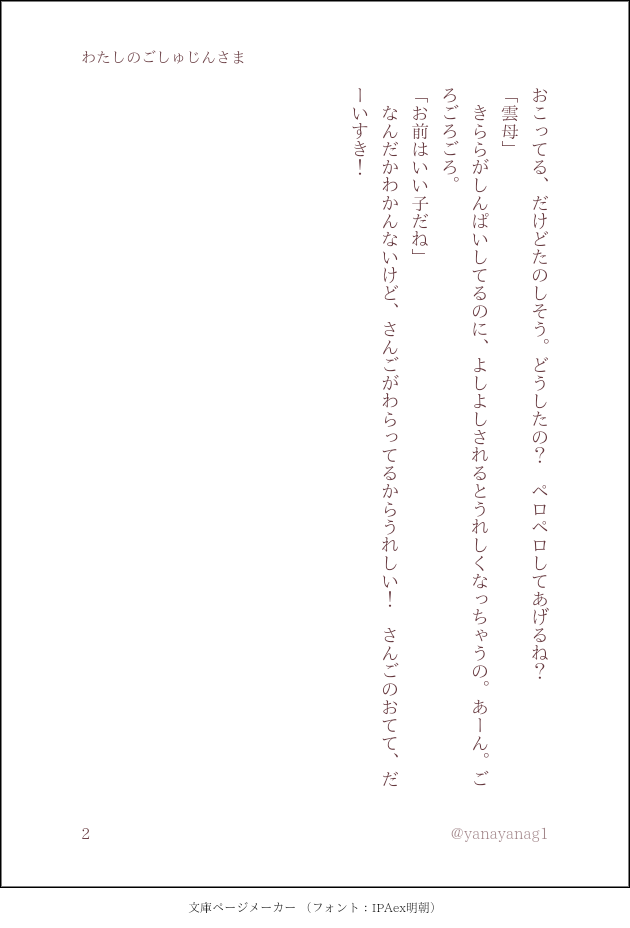 わたしのごしゅじんさま
おこってる、だけどたのしそう。どうしたの？　ペロペロしてあげるね？
「雲母」
　きららがしんぱいしてるのに、よしよしされるとうれしくなっちゃうの。あーん。ご
ろごろごろ。
「お前はいい子だね」
　なんだかわかんないけど、さんごがわらってるからうれしい！　さんごのおてて、だ
ーいすき！
2
@yanayanag1
文庫ページメーカー （フォント：IPAex明朝）